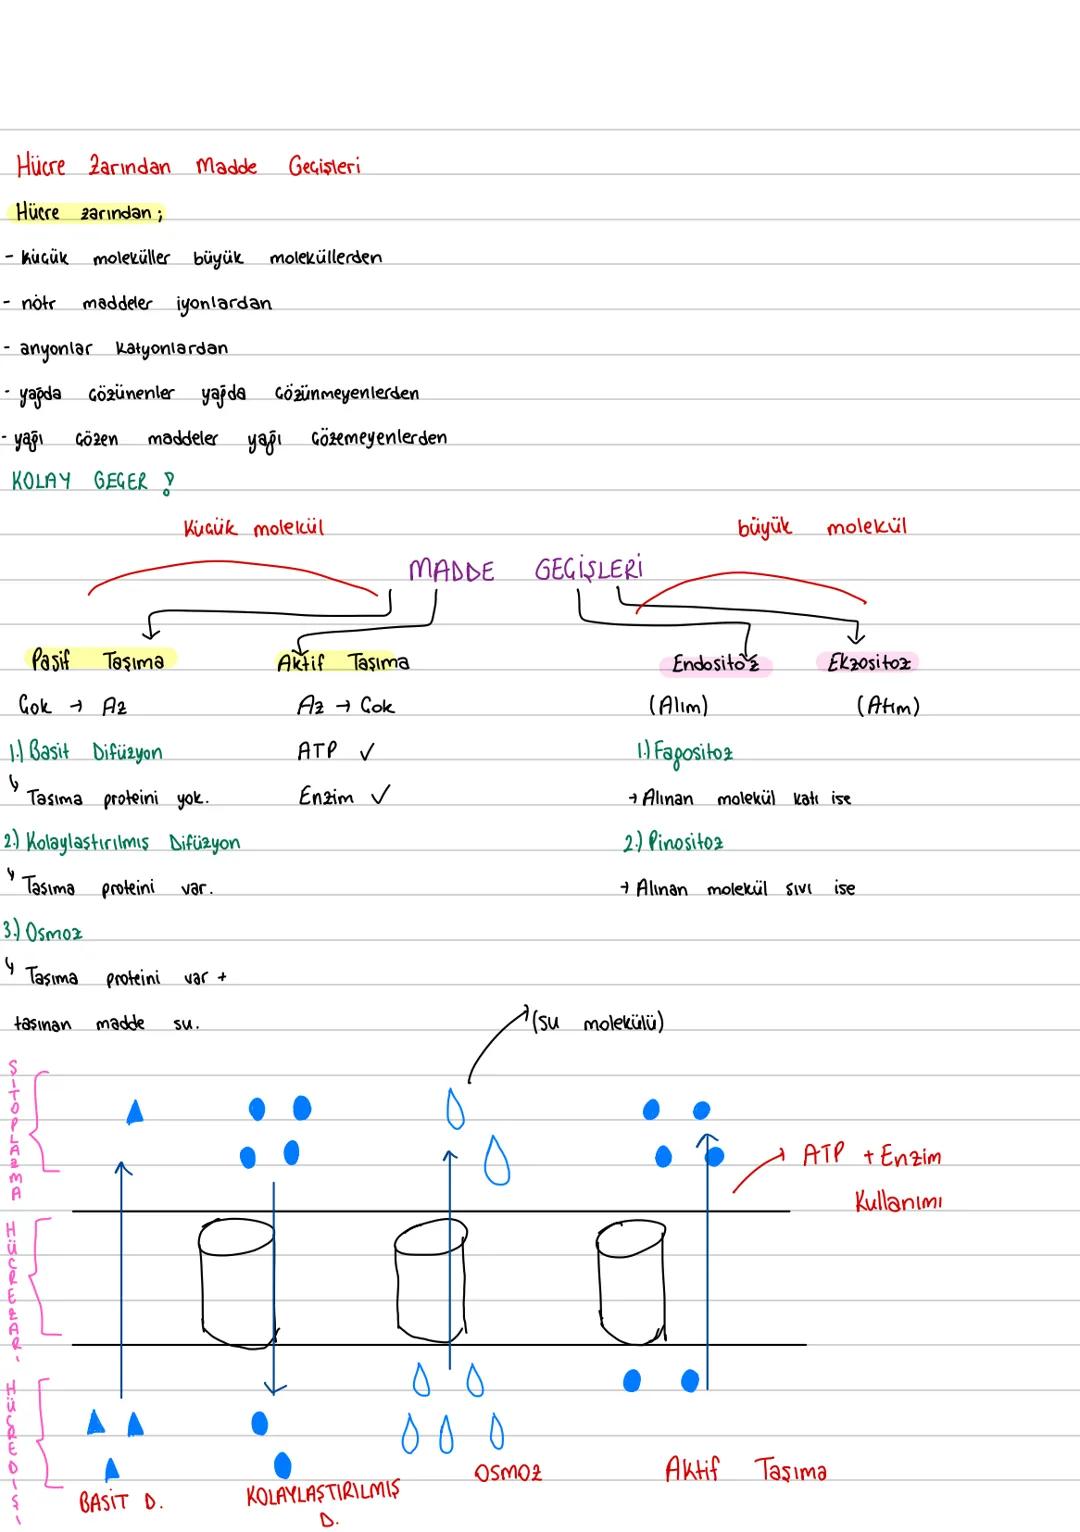 Hücre Zarından Madde Geçişleri
Hücre zarından;
- küçük moleküller büyük moleküllerden
- nötr maddeler iyonlardan
- anyonlar katyonlardan
- yağda çözünenler yağda çözünmeyenlerden
- yağı çözen maddeler yağı çözemeyenlerden
KOLAY GEÇER !
Küçük molekül
büyük molekül
MADDE GEÇİŞLERİ
Pasif Taşıma
Aktif Taşıma
Endositoz
Ekzositoz
Çok → Az
Az → Çok
(Alım)
(Atım)
1.) Basit Difüzyon
ATP ✓
1.) Fagositoz
↳ Taşıma proteini yok.
Enzim ✓
→ Alınan molekül katı ise
2.) Kolaylaştırılmış Difüzyon
2.) Pinositoz
↳ Taşıma proteini var.
→ Alınan molekül sıvı ise
3.) Osmoz
↳ Taşıma proteini var +
taşınan madde su.
(su molekülü)
SITOPLAZMA
ATP + Enzim
Kullanımı
HÜCRE ZARI
HÜCRE DIŞI
BASİT D.
KOLAYLAŞTIRILMIŞ
D.
OSMOZ
Aktif Taşıma